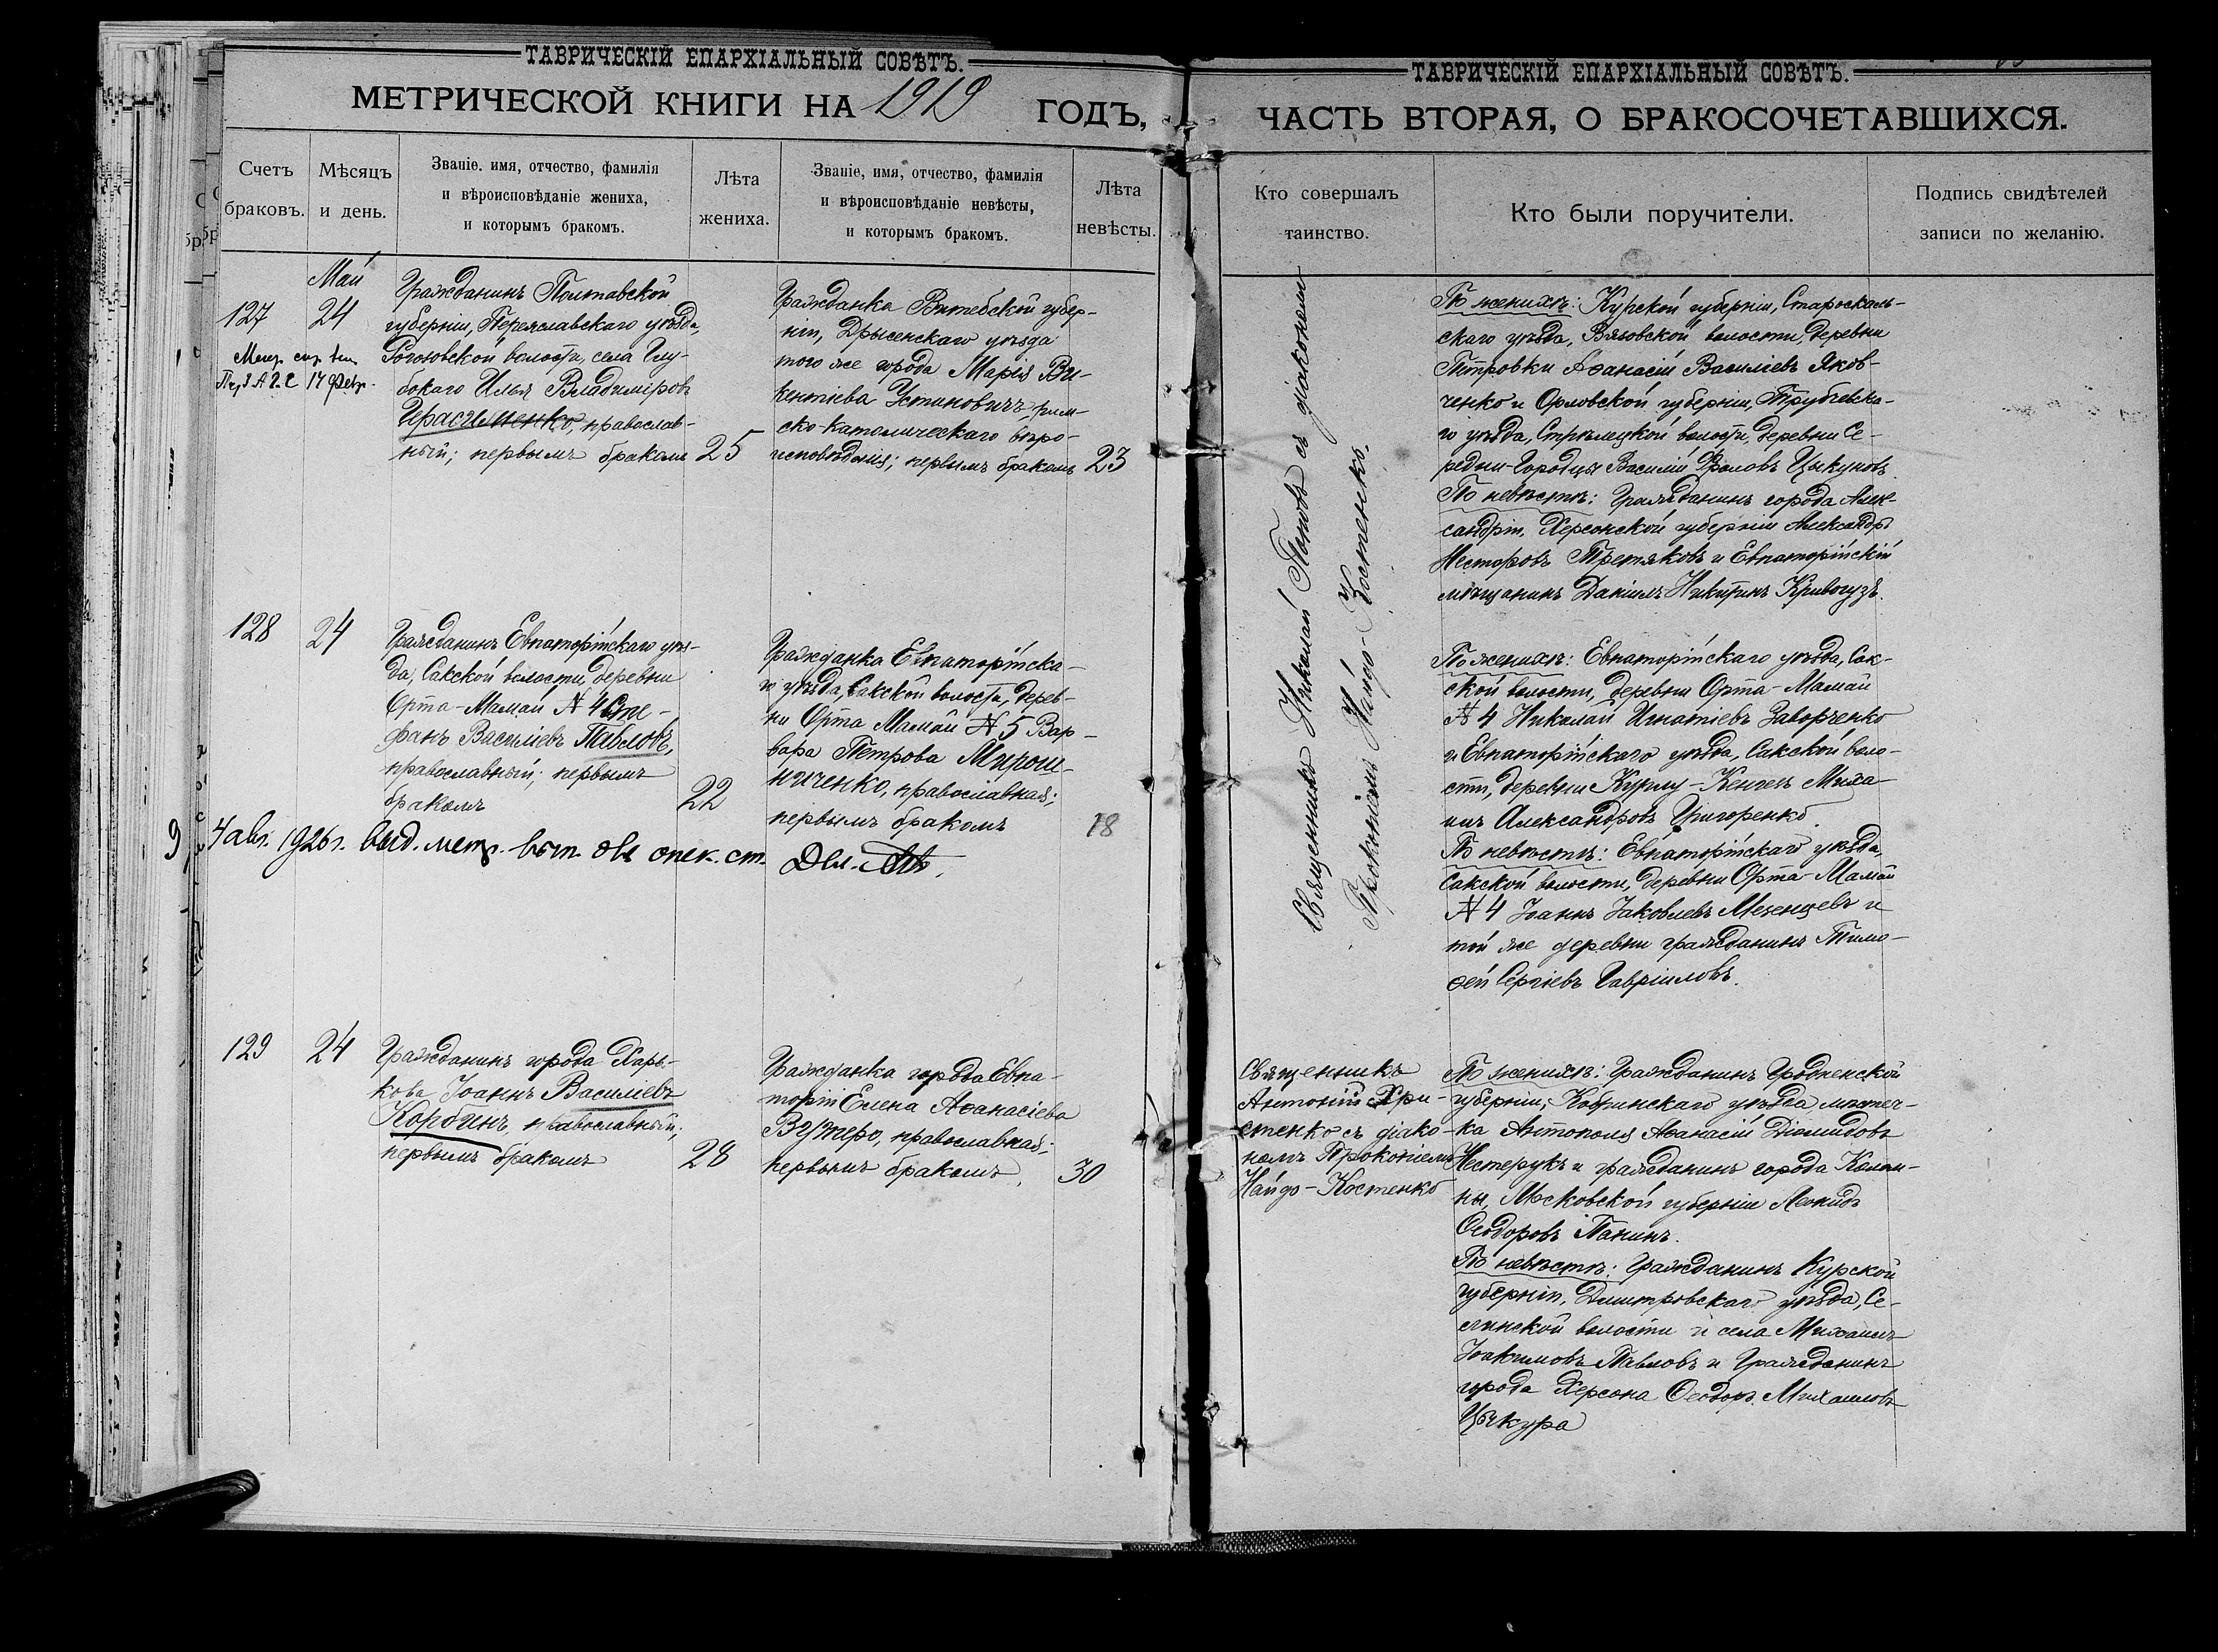 ТАВРИЧЕСКІЙ ЕПАРХІАЛЬНЫЙ СОВѢТЪ.
МЕТРИЧЕСКОЙ КНИГИ НА 1919 ГОДЪ,
Счетъ браковъ.
Мѣсяцъ и день.
Званіе. имя, отчество, фамилія
и вѣроисповѣданіе жениха,
и которымъ бракомъ.
Лѣта жениха.
Званіе, имя, отчество, фамилія
и вѣроисповѣданіе невѣсты,
и которымъ бракомъ.
Лѣта невѣсты.
127
Май
24
Гражданинъ Полтавской
губерніи, Переяславскаго уѣзда,
Рогозовской волости, села Глу-
бокаго Илья Владиміровъ
Герасименко, православ-
ный; первымъ бракомъ
25
Гражданка Витебской губер-
ніи, Дрысенскаго уѣзда
того же города Марія Ви-
кентіева Устиновичъ, рим-
ско-католическаго вѣро-
исповѣданія; первымъ бракомъ
23
128
24
Гражданинъ Евпаторійскаго уѣз-
да, Сакской волости, деревни
Орта-Мамай № 4 Сте-
фанъ Василіевъ Павловъ,
православный; первымъ
бракомъ
22
Гражданка Евпаторійска-
го уѣзда, Сакской волости, дерев-
ни Орта Мамай № 5 Вар-
вара Петрова Мирош-
ниченко, православная;
первымъ бракомъ
18
4 авг. 1926 г. выд. метр. вып. опек. ст.
129
24
Гражданинъ города Харь-
кова Іоаннъ Василіевъ
Кородинъ, православный;
первымъ бракомъ
28
Гражданка города Евпа-
торіи Елена Аѳанасіева
православная;
первымъ бракомъ,
30
ТАВРИЧЕСКІЙ ЕПАРХІАЛЬНЫЙ СОВѢТЪ.
ЧАСТЬ ВТОРАЯ, О БРАКОСОЧЕТАВШИХСЯ.
Кто совершалъ таинство.
Кто были поручители.
Подпись свидѣтелей записи по желанію.
Священникъ Николай Поповъ съ діакономъ
Прокопіемъ Найдо-Костенко.
По женихѣ: Курской губерніи, Староскаль-
скаго уѣзда, Вязовской волости, деревни
Петровки Аѳанасій Василіевъ Яков-
ченко и Орловской губерніи, Трубчевска-
го уѣзда, Стрѣлецкой волости, деревни Се-
редни-Городцы Василій Фроловъ Цыкуновъ.
По невѣстѣ: Гражданинъ города Алек-
сандріи, Херсонской губерніи Александръ
Несторовъ Третяковъ и Евпаторійскій
мѣщанинъ Даніилъ Никитинъ Кривогузъ.
По женихѣ: Евпаторійскаго уѣзда, Сак-
ской волости, деревни Орта-Мамай
№ 4 Николай Игнатіевъ Заворченко
и Евпаторійскаго уѣзда, Сакской воло-
сти, деревни Курулу-Кенегезъ Миха-
илъ Александровъ Григоренко.
По невѣстѣ: Евпаторійскаго уѣзда,
Сакской волости, деревни Орта-Мамай
№ 4 Іоаннъ Іаковлевъ Мезенцевъ и
той же деревни гражданинъ Тимо-
ѳей Сергіевъ Гавріиловъ.
Священникъ
Антоній Хри-
стенко съ діако-
номъ Прокопіемъ
Найдо-Костенко
По женихѣ: Гражданинъ Гродненской
губерніи, Кобринскаго уѣзда, мѣстеч-
ка Антополя Аѳанасій Діомидовъ
Нестерукъ и гражданинъ города Колом-
ны, Московской губерніи Леонидъ
Ѳеодоровъ Панинъ.
По невѣстѣ: Гражданинъ Курской
губерніи, Дмитровскаго уѣзда, Се-
линской волости и села Михаилъ
Іоакимовъ Павловъ и Гражданинъ
города Херсона Ѳеодоръ Михаиловъ
Цыкура